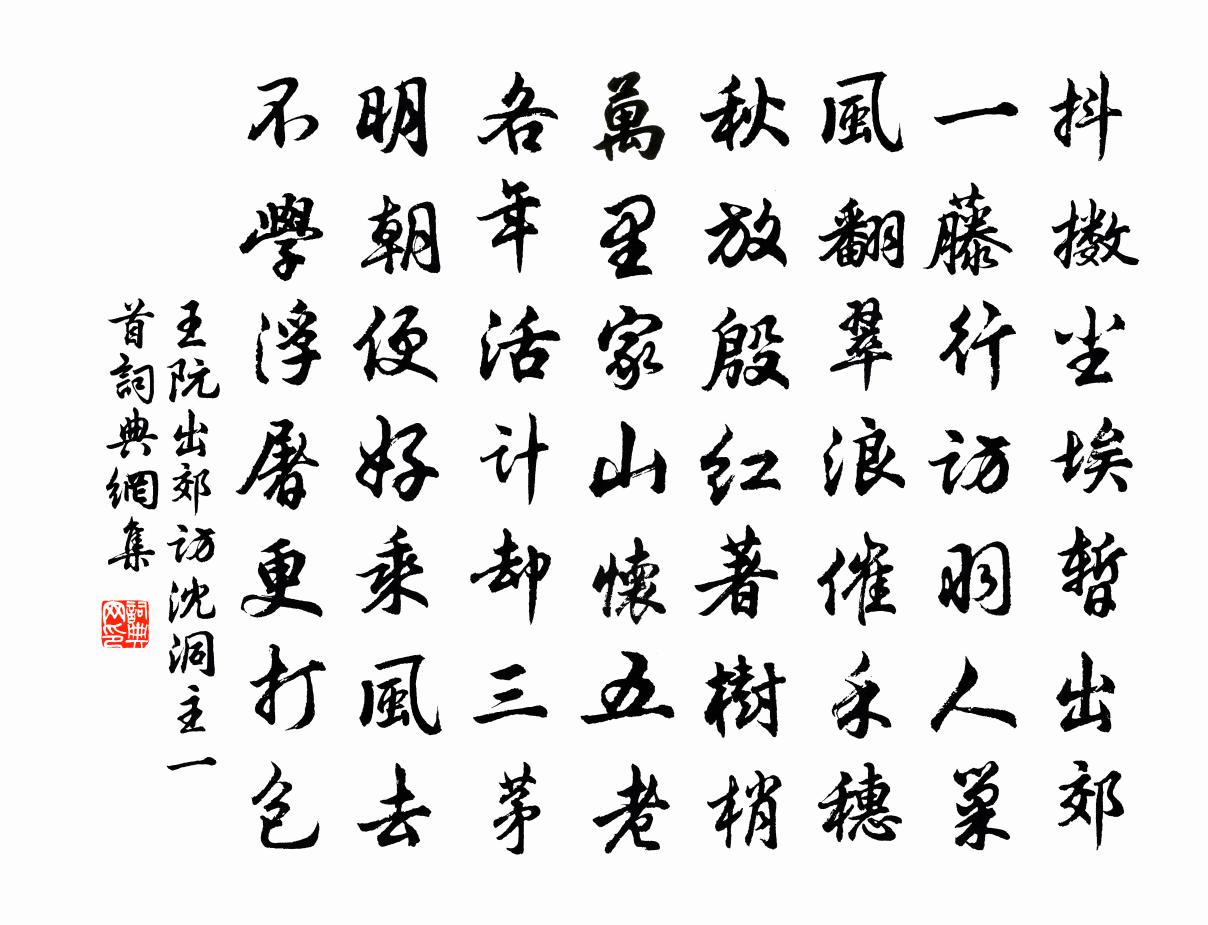 抖擻尘埃暫出郊
一藤行访羽人巢
風翻翠浪催禾穗
秋放殷红著樹梢
萬里家山懷五老
各年活计却三茅
明朝便好乘風去
不學浮屠更打包
王阮出郊访沈洞主一
首詞典網集
詞典网印